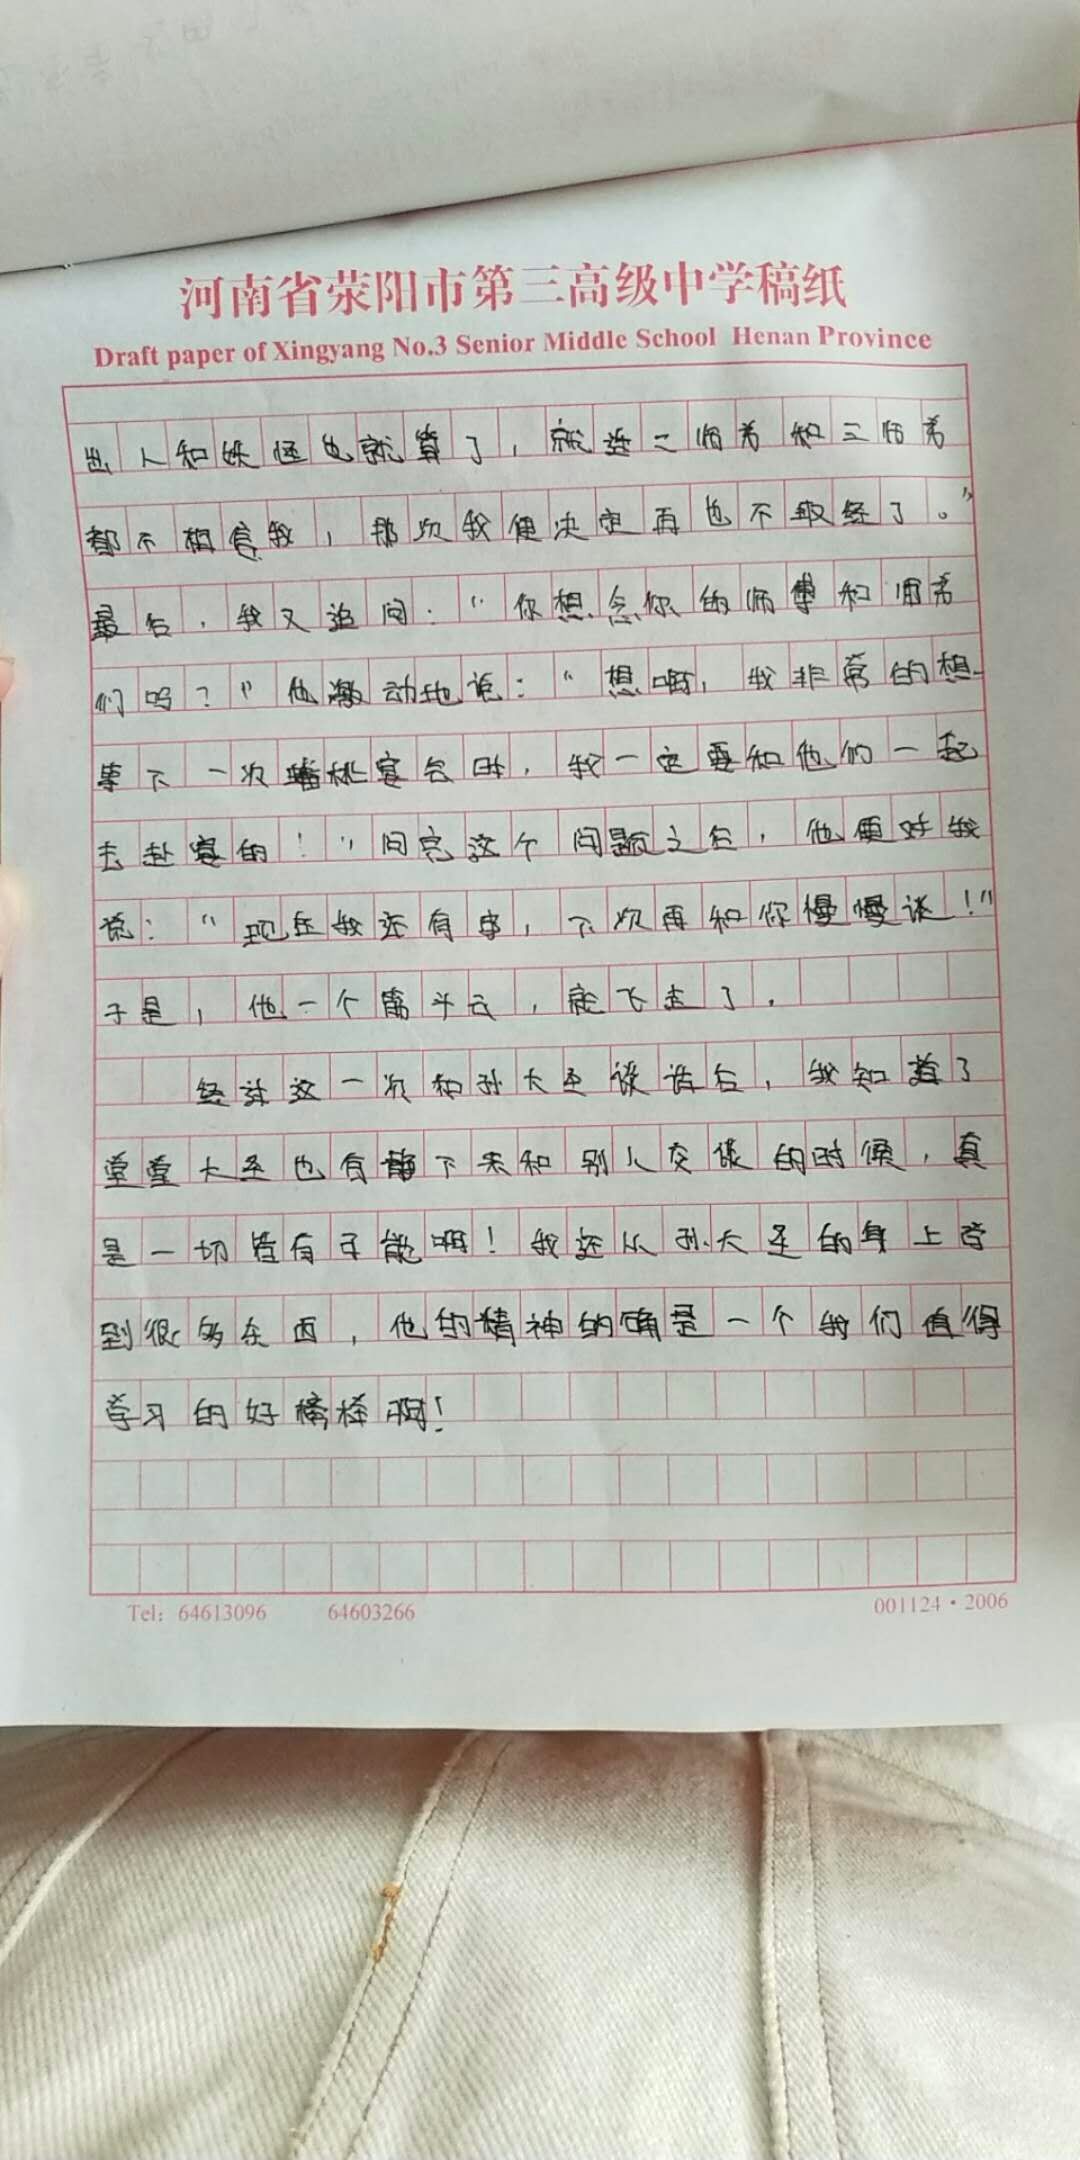 河南省荥阳市第三高级中学稿纸
Draft paper of Xingyang No.3 Senior Middle School Henan Province
出人和妖怪也就算了，就连二师弟和三师弟
都不相信我，那次我便决定再也不取经了。”
最后，我又追问：“你想念你的师傅和师弟
们吗？”他激动地说：“想啊，我非常的想
等下一次蟠桃宴会时，我一定要和他们一起
去赴宴的！”问完这个问题之后，他便对我
说：“现在我还有事，下次再和你慢慢谈！”
于是，他一个筋斗云，就飞走了。
经过这一次和孙大圣谈话后，我知道了
堂堂大圣也有静下来和别人交谈的时候，真
是一切皆有可能啊！我还从孙大圣的身上学
到很多东西，他的精神的确是一个我们值得
学习的好榜样啊！
Tel: 64613096 64603266
001124·2006